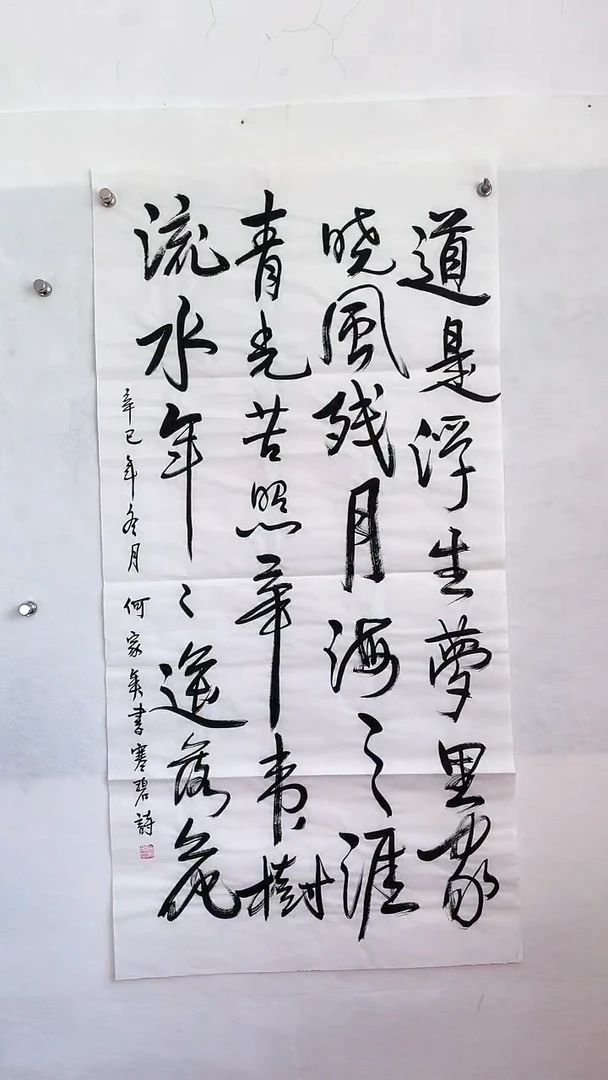 道是浮生夢里家
晓風残月海之涯
青光苦照辛夷樹
流水年〻送落花
辛巳年冬月 何家書寒碧詩